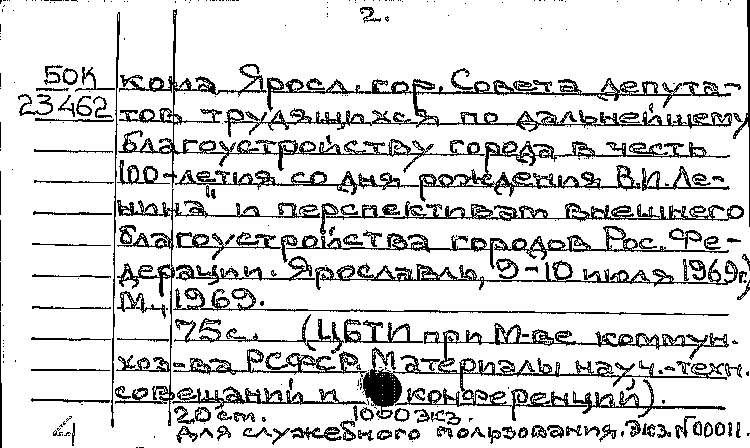 2.
50К
23462
кома Яросл. гор. Совета депута-
тов трудящихся по дальнейшему
благоустройству города в честь
100-летия со дня рождения В.И.Ле-
нина" и перспективам внешнего
благоустройства городов Рос. Фе-
дерации. Ярославль, 9-10 июля 1969г.)
М., 1969.
75с. (ЦБТИ при М-ве коммун.
хоз-ва РСФСР. Материалы науч.-техн.
совещаний и конференций).
20 см. 1000 экз.
Для служебного пользования. Экз. N 00011.
4